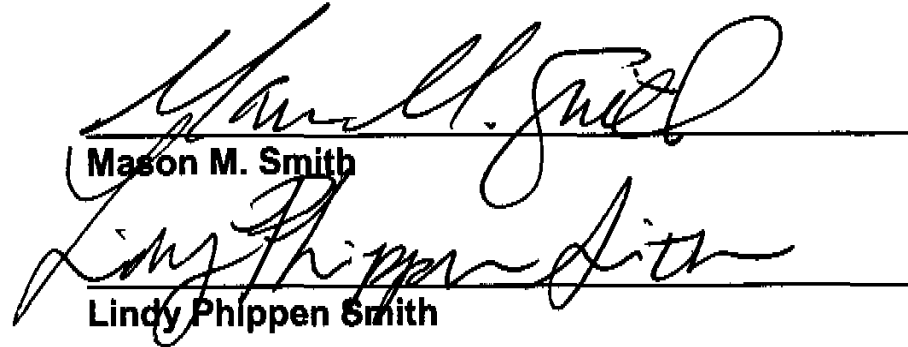 Mason M. Smith
Mason M. Smith
Lindy Phippen Smith
Lindy Phippen Smith